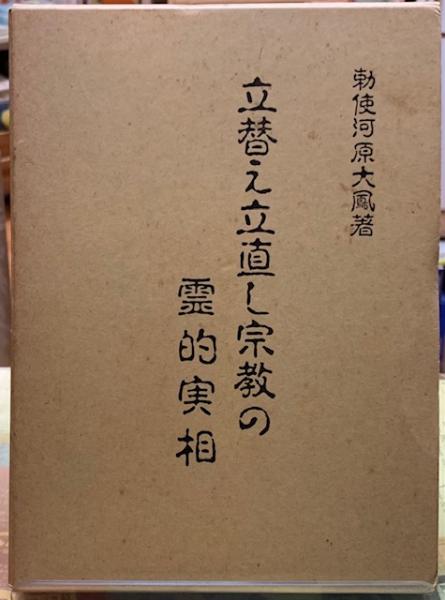 勅使河原大鳳著
立替え立直し宗教の
霊的実相